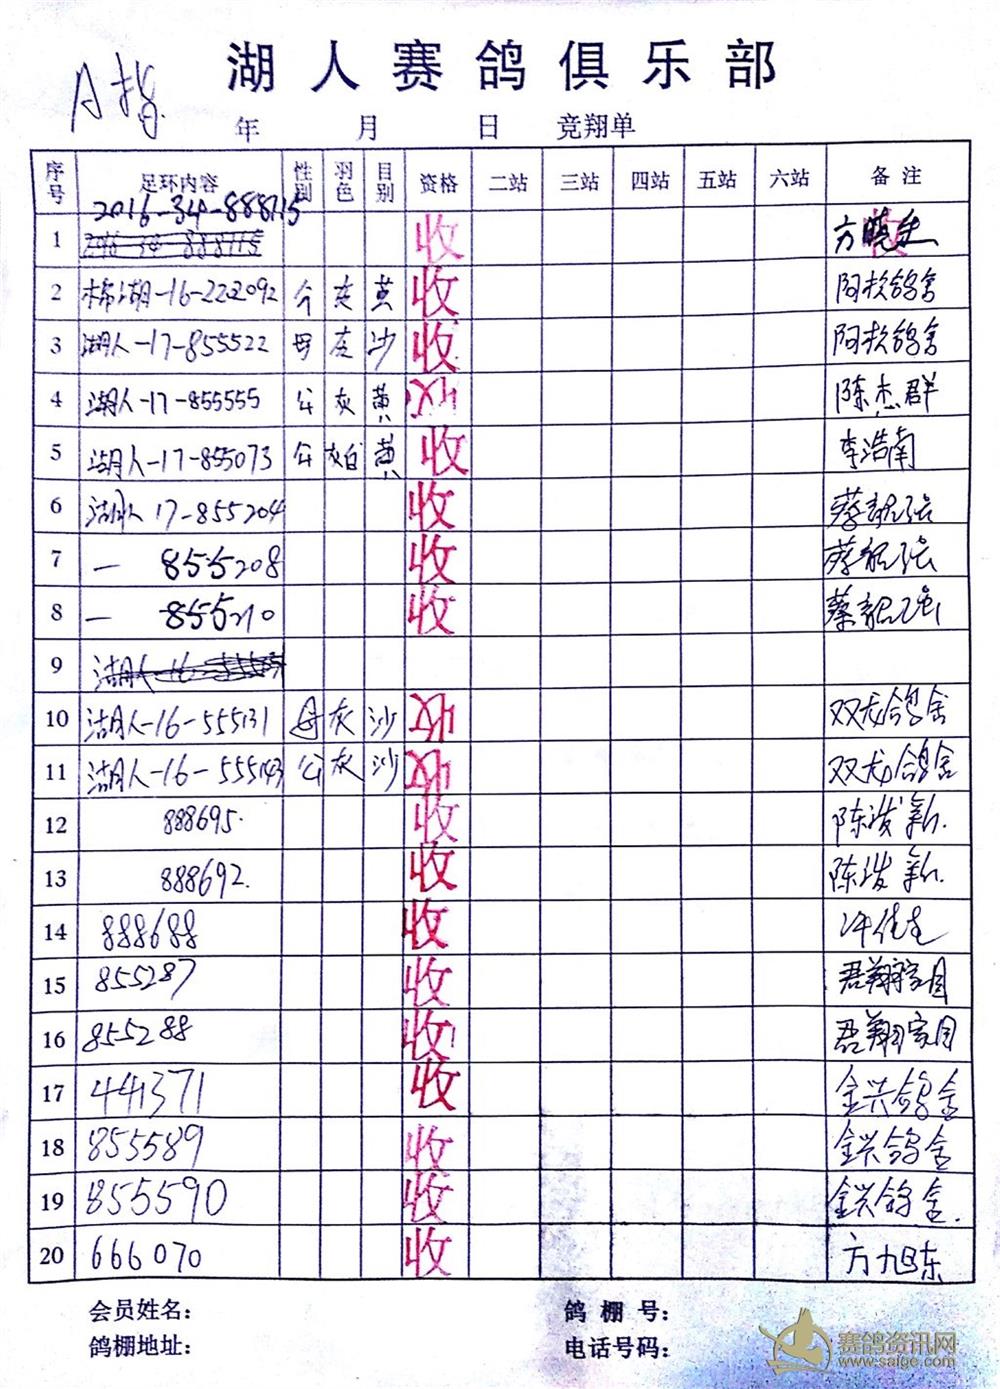 湖人赛鸽俱乐部
A指
年 月 日 竞翔单
序号 足环内容 性别 羽色 目别 资格 二站 三站 四站 五站 六站 备注
2016-34-888115
1 收 方晓生
2 棉湖-16-222092 公 灰 黄 收 阿彬鸽舍
3 湖人-17-855522 母 灰 沙 收 阿彬鸽舍
4 湖人-17-855555 公 灰 黄 陈杰群
5 湖人-17-855073 公 灰白 黄 收 李浩南
6 湖人 17-855204 收 蔡
7 一 855208 收 蔡
8 一 855210 收 蔡
9 湖人-16-
10 湖人-16-555131 母 灰 沙 双龙鸽舍
11 湖人-16-555143 公 灰 沙 双龙鸽舍
12 888695. 收 陈
13 888692. 收 陈
14 888688 收 许
15 855287 收 君翔家园
16 855288 收 君翔家园
17 441371 收 金兴鸽舍
18 855589 收 金兴鸽舍
19 855590 收 金兴鸽舍.
20 666070 收 方旭东
会员姓名： 鸽棚号：
鸽棚地址： 电话号码：
赛鸽资讯网
www.saige.com